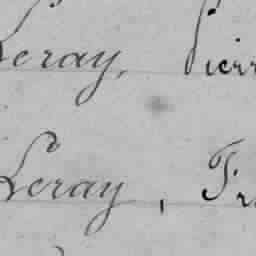 Leray, Pierr
Leray, Fr